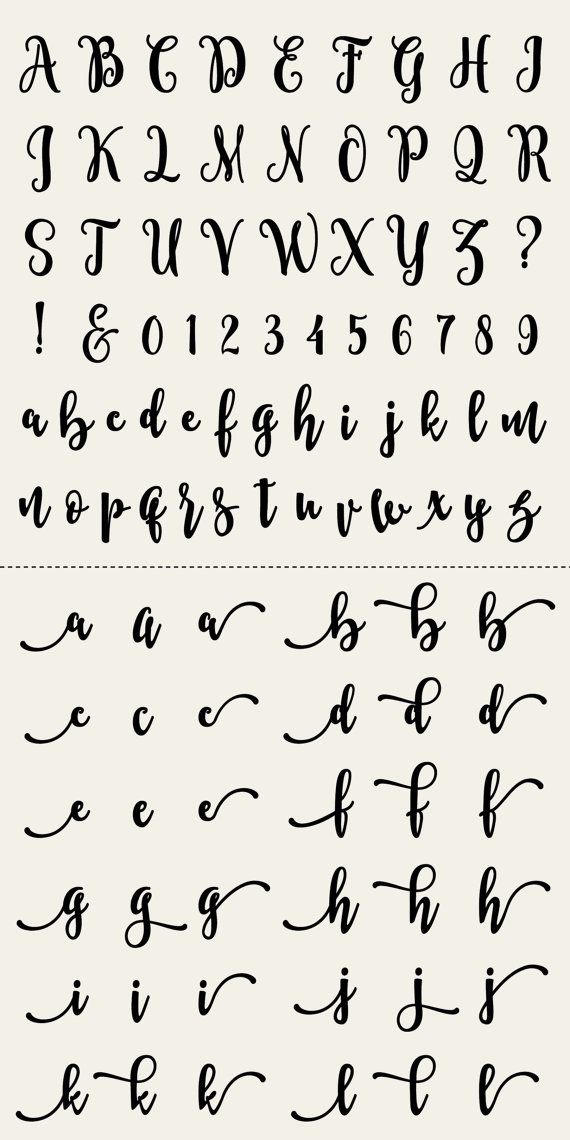 A B C D E F G H I
J K L M N O P Q R
S T U V W X Y Z ?
! & 0 1 2 3 4 5 6 7 8 9
a b c d e f g h i j k l m
n o p q r s t u v w x y z
a a a b b b
c c c d d d
e e e f f f
g g g h h h
i i i j j j
k k k l l l